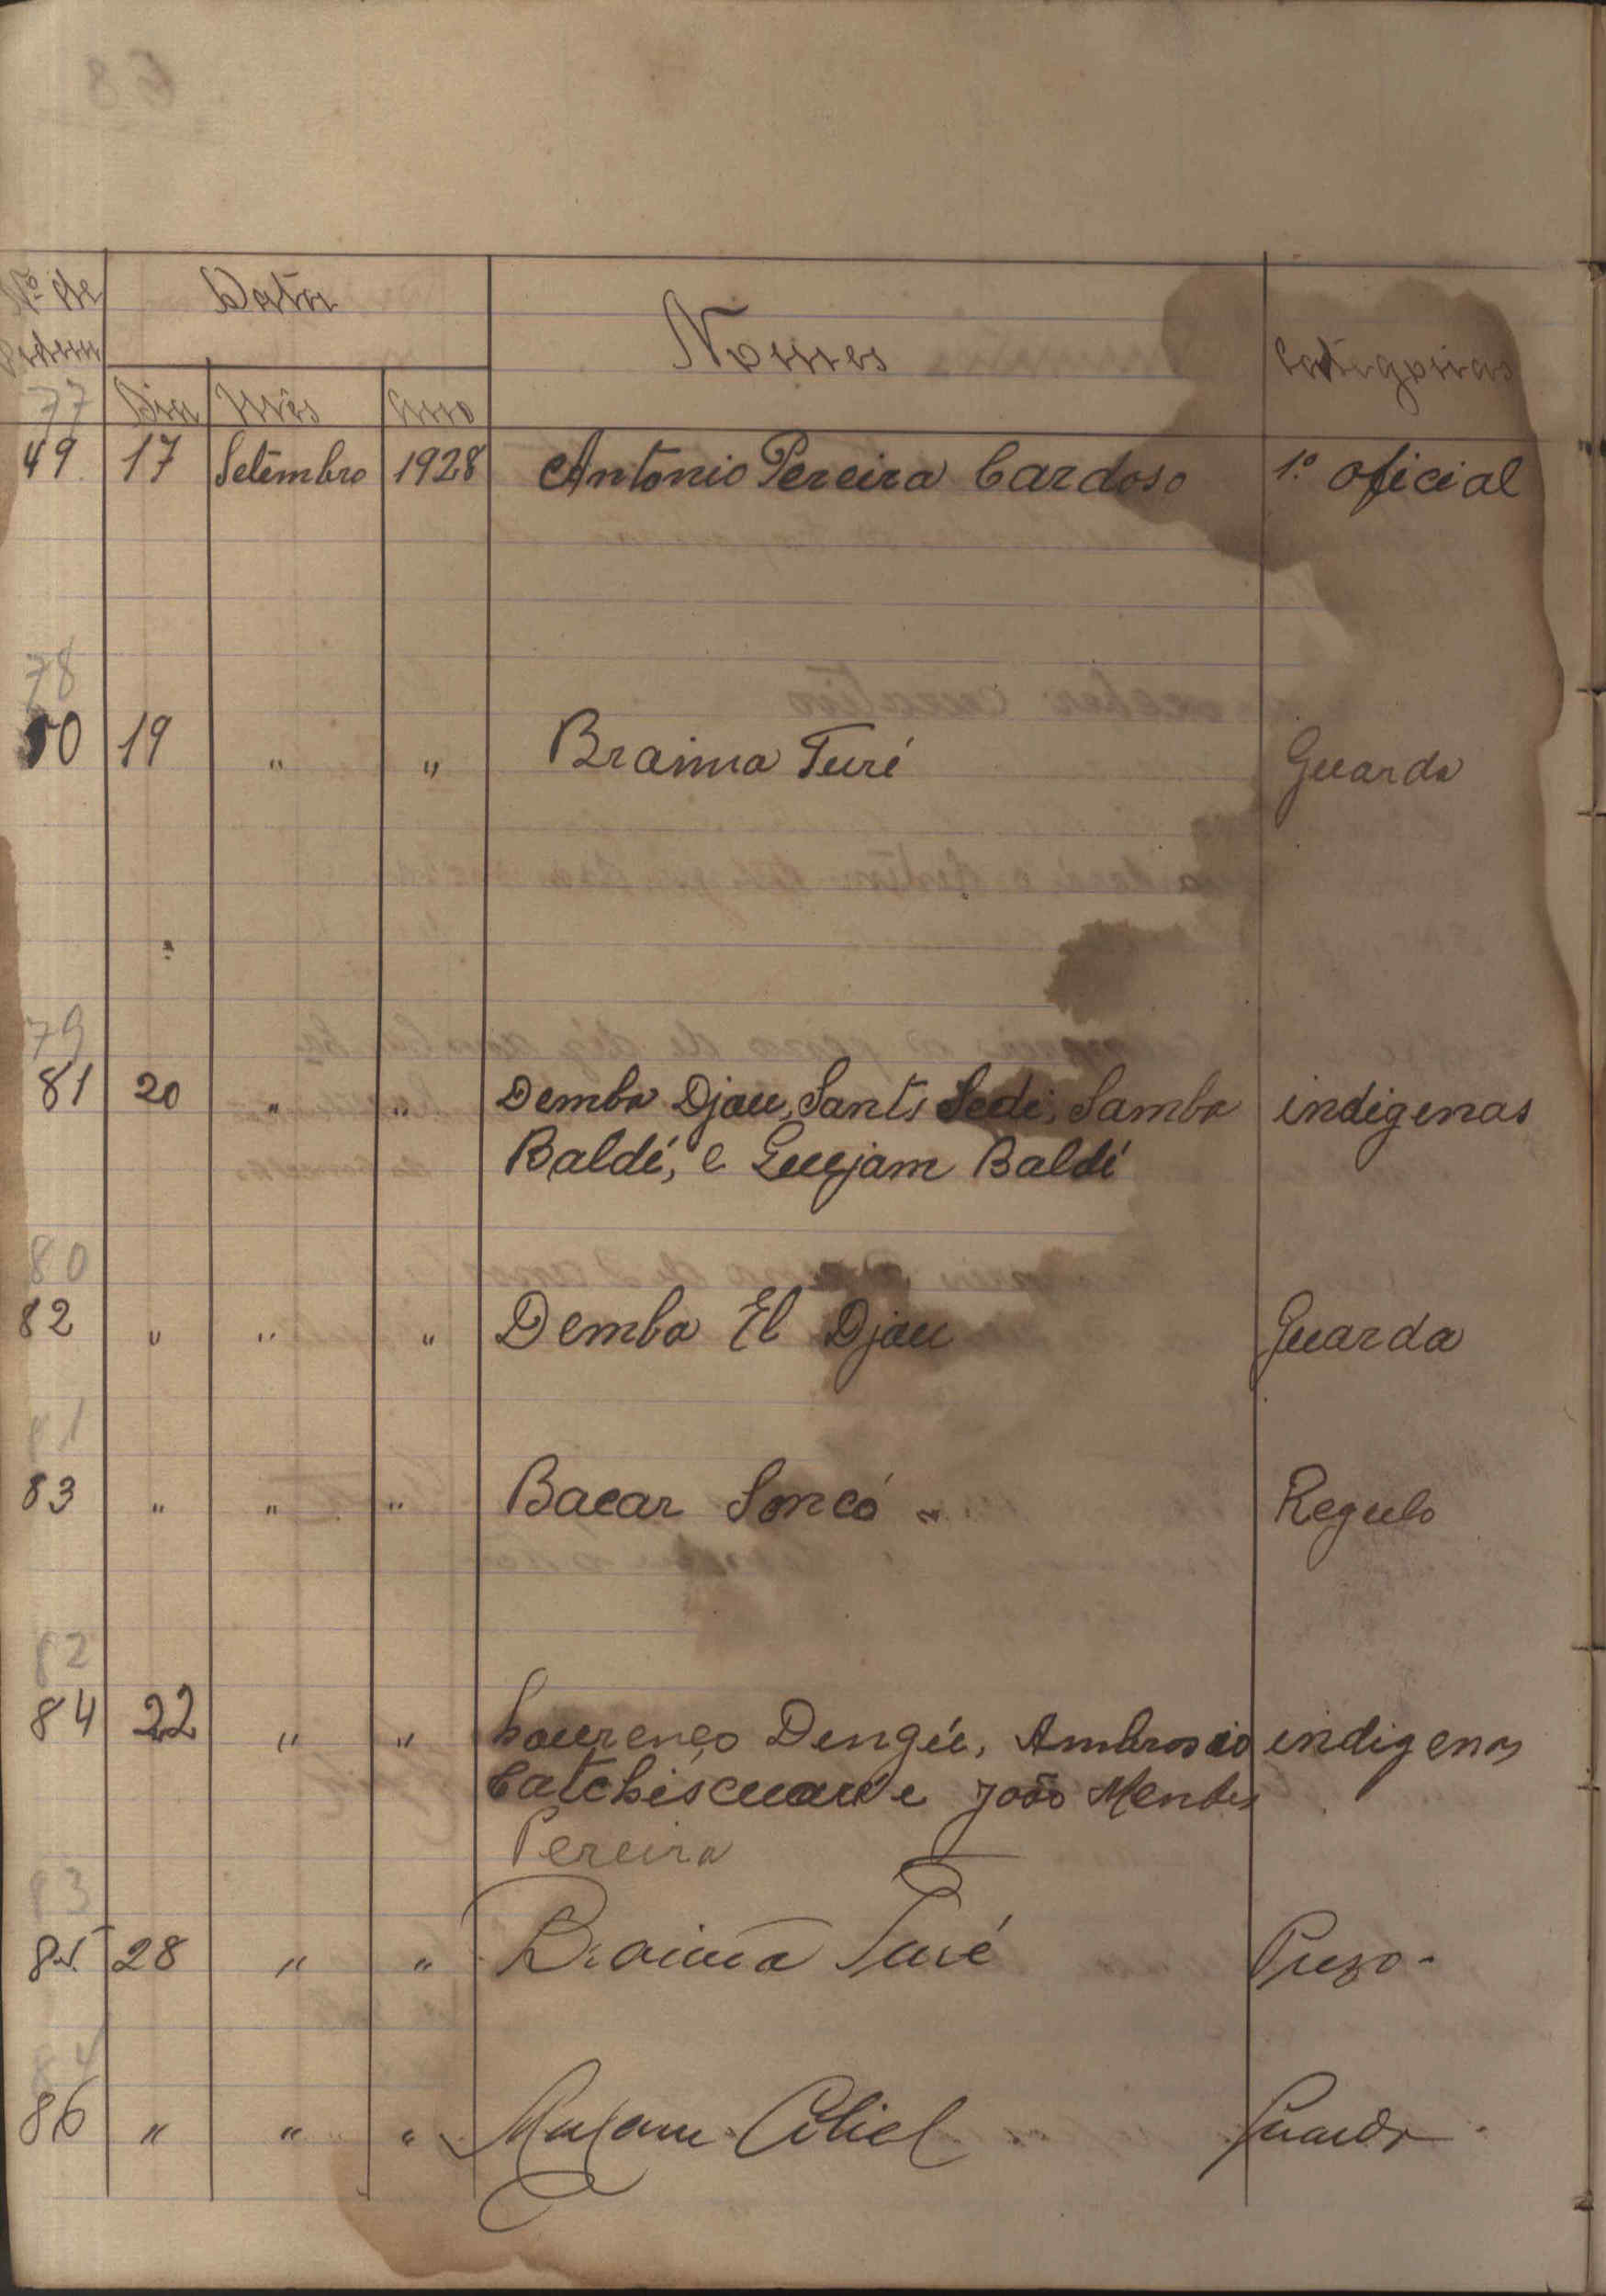 Nº de Ordem Data Nomes Categorias
77 Dia Mês Ano
49 17 Setembro 1928 Antonio Pereira Cardoso 1.º oficial
78
50 19 " " Braima Turé Guarda
79
81 20 " " Demba Djau, Santi Sedi, Samba indigenas
Baldé, e Guejam Baldé
80
82 " " " Demba El Djau Guarda
81
83 " " " Bacar Soncó Regulo
82
84 22 " " Lourenço Dengúe, Ambrosio indigenas
e João Mendes
Pereira
83
85 28 " " Braima Turé Prezo -
84
86 " " " Guarda